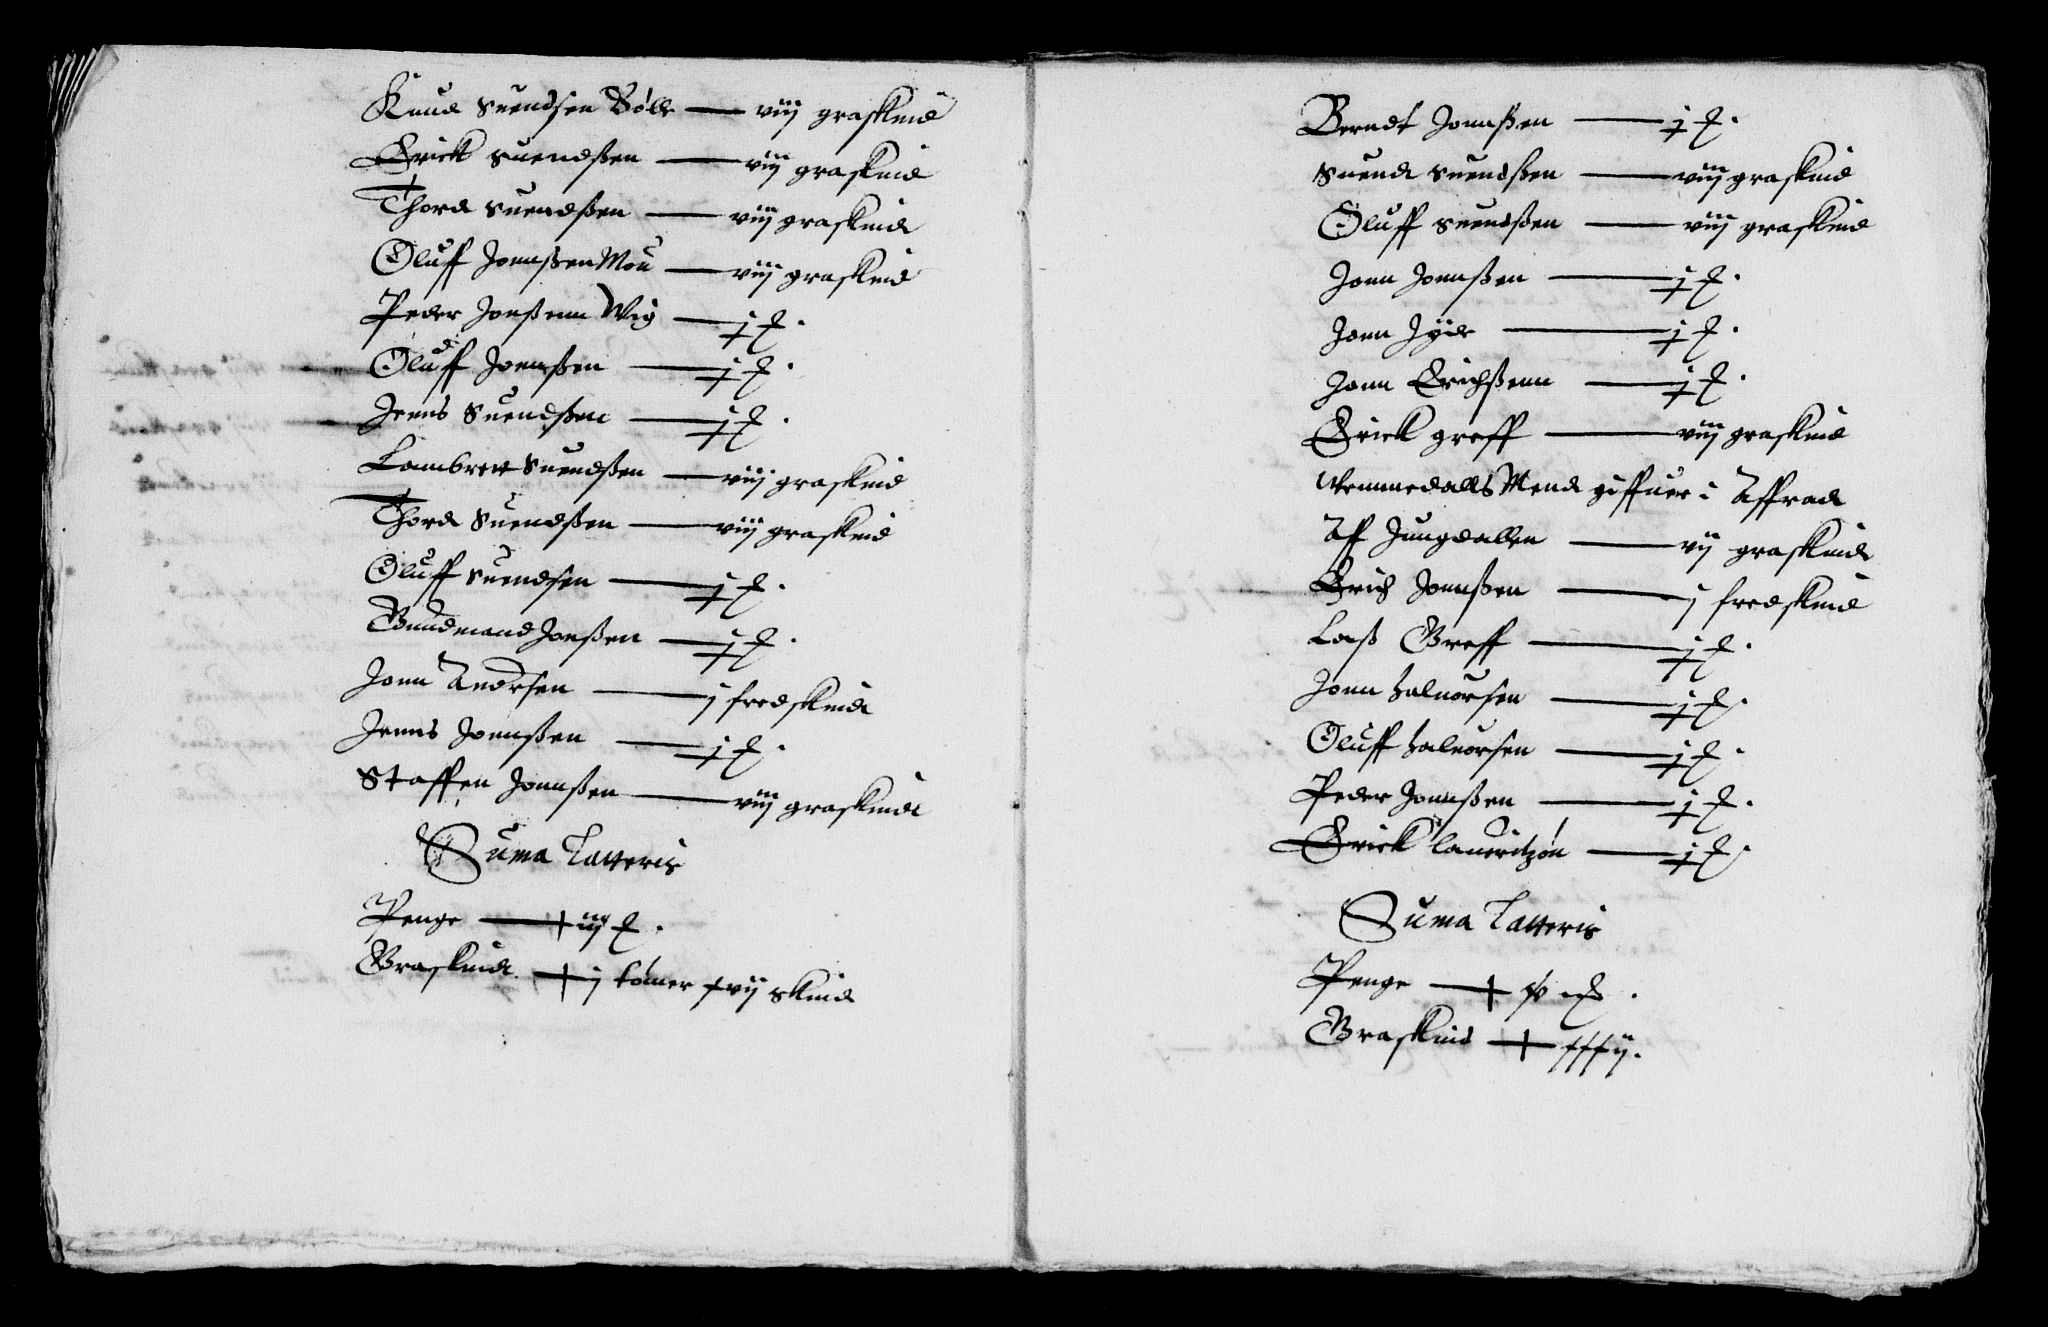 Knud Suendsen Bölle — viij graskind
Erick Suendßen — viij graskind
Thord Suendßen — viij graskind
Oluff Jonnßen Mou — viij graskind
Peder Jonßenn Wig — j
Oluff Joenßen — j
Jenns Suendßen — j
Lambrett Suendßen — viij graskind
Thord Suendßen — viij graskind
Oluff Suendsen — j
Gudmand Jonßen — j
Jonn Andersen — j fredskind
Jenns Jonnßen — j
Staffen Jonnßen — viij graskind
Suma Latteris
Penge
Graskind — j tömer xvij skind
Berndt Jonnßen — j
Suend Suendßen — viij graskind
Oluff Suendßen — viij graskind
Jonn Jonnßen — j
Jonn Jyde — j
Jonn Erichßenn — j
Erick greff — viij graskind
Wemmedalls Mend giffuer i Affrad
Aff Jungdallen — vij graskind
Erich Jonnßen — j fredskind
Laß Greff — j
Jonn Haluorsen — j
Oluff Haluorsen — j
Peder Jonnßen — j
Erick Lauritzön — j
Suma Latteris
Penge
Graskind — xxxij